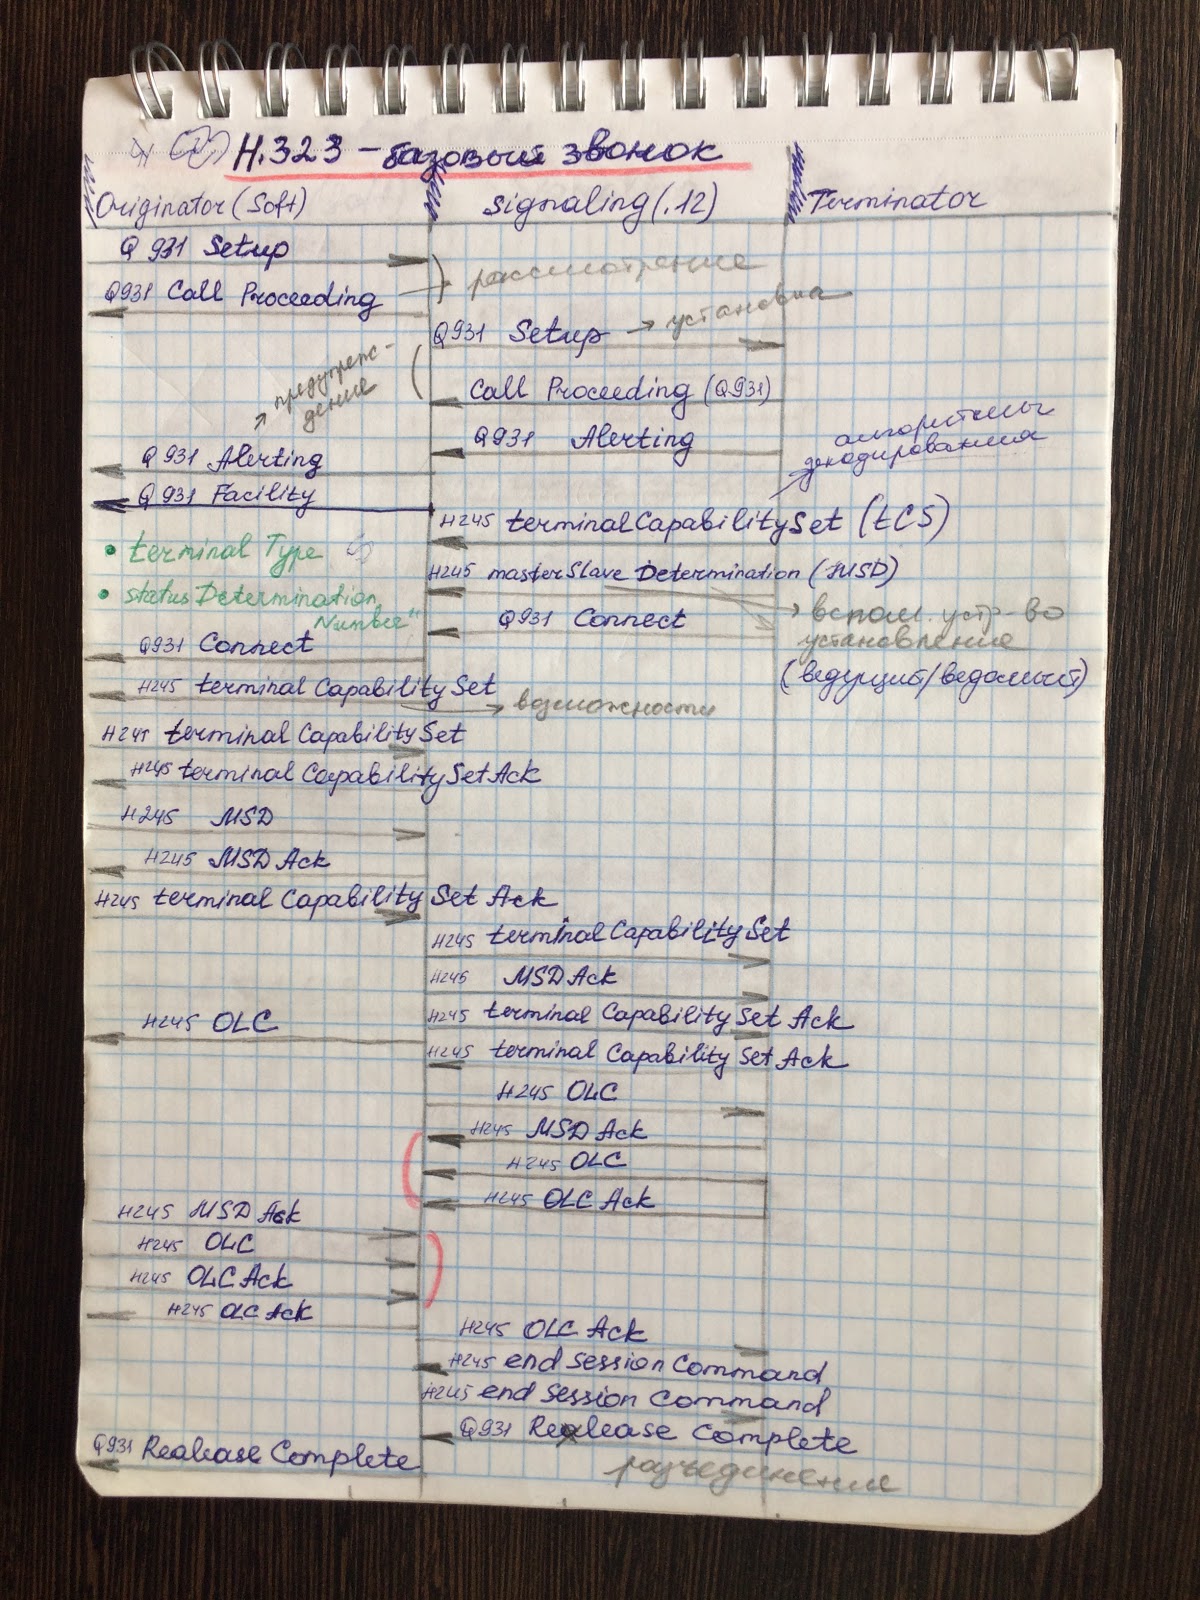 H.323 – базовый звонок
Originator (Soft)
Signaling (.12)
Terminator
Q 931 Setup
рассмотрение
Q931 Call Proceeding
Q931 Setup → установка
предупреж-
дение
Call Proceeding (Q931)
Q931 Alerting
алгоритмы
декодирования
Q 931 Alerting
Q 931 Facility
H245 terminalCapabilitySet (tCS)
• terminal Type
H245 masterSlave Determination (MSD)
• status Determination
Number"
Q931 Connect
вспом. устр-во
установление
(ведущий/ведомый)
Q931 Connect
H245 terminal Capability Set
возможности
H245 terminal Capability Set
H245 terminal Capability Set Ack
H245 MSD
H245 MSD Ack
H245 terminal Capability Set Ack
H245 terminal Capability Set
H245 MSD Ack
H245 terminal Capability Set Ack
H245 OLC
H245 terminal Capability Set Ack
H245 OLC
H245 MSD Ack
H245 OLC
H245 OLC Ack
H245 MSD Ack
H245 OLC
H245 OLC Ack
H245 OLC Ack
H245 OLC Ack
H245 end Session Command
H245 end Session Command
Q931 Realease Complete
Q931 Realease Complete
разъединение